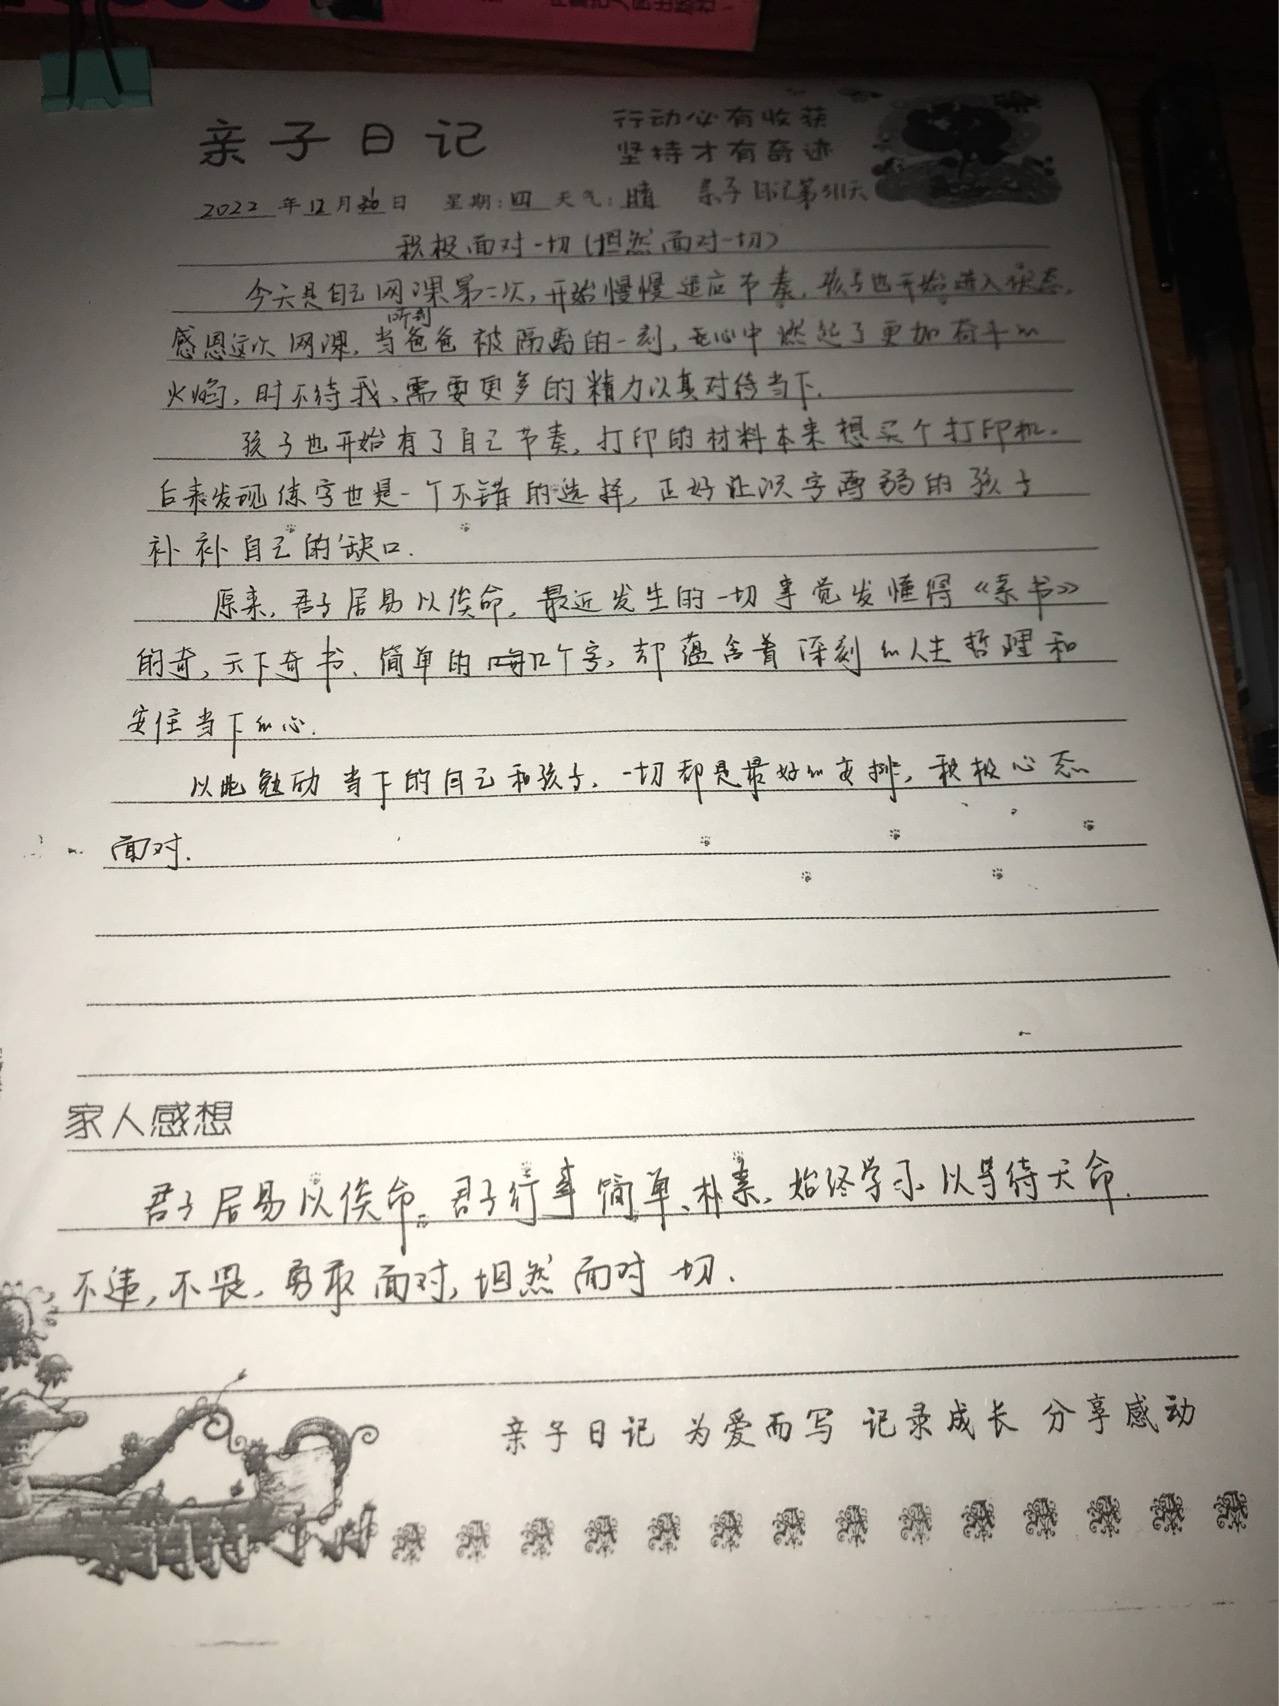 亲子日记
行动必有收获
坚持才有奇迹
2022年12月日 星期:四 天气:晴 亲子日记第311天
积极面对一切(坦然面对一切)
今天是自己网课第二次,开始慢慢适应节奏,孩子也开始进入状态,
感恩这次网课,当听到爸爸被隔离的一刻,在心中燃起了更加奋斗的
火焰,时不待我、需要更多的精力认真对待当下.
孩子也开始有了自己节奏,打印的材料本来想买个打印机.
后来发现练字也是一个不错的选择,正好让汉字薄弱的孩子
补补自己的缺口.
原来,君子居易以俟命,最近发生的一切事觉发懂得《素书》
的奇,天下奇书、简单的每个字,却蕴含着深刻的人生哲理和
安住当下的心.
以此勉励当下的自己和孩子,一切都是最好的安排,积极心态
面对.
家人感想
君子居易以俟命。君子行事简单、朴素、始终学习以等待天命.
不违,不畏,勇敢面对,坦然面对一切.
亲子日记 为爱而写 记录成长 分享感动